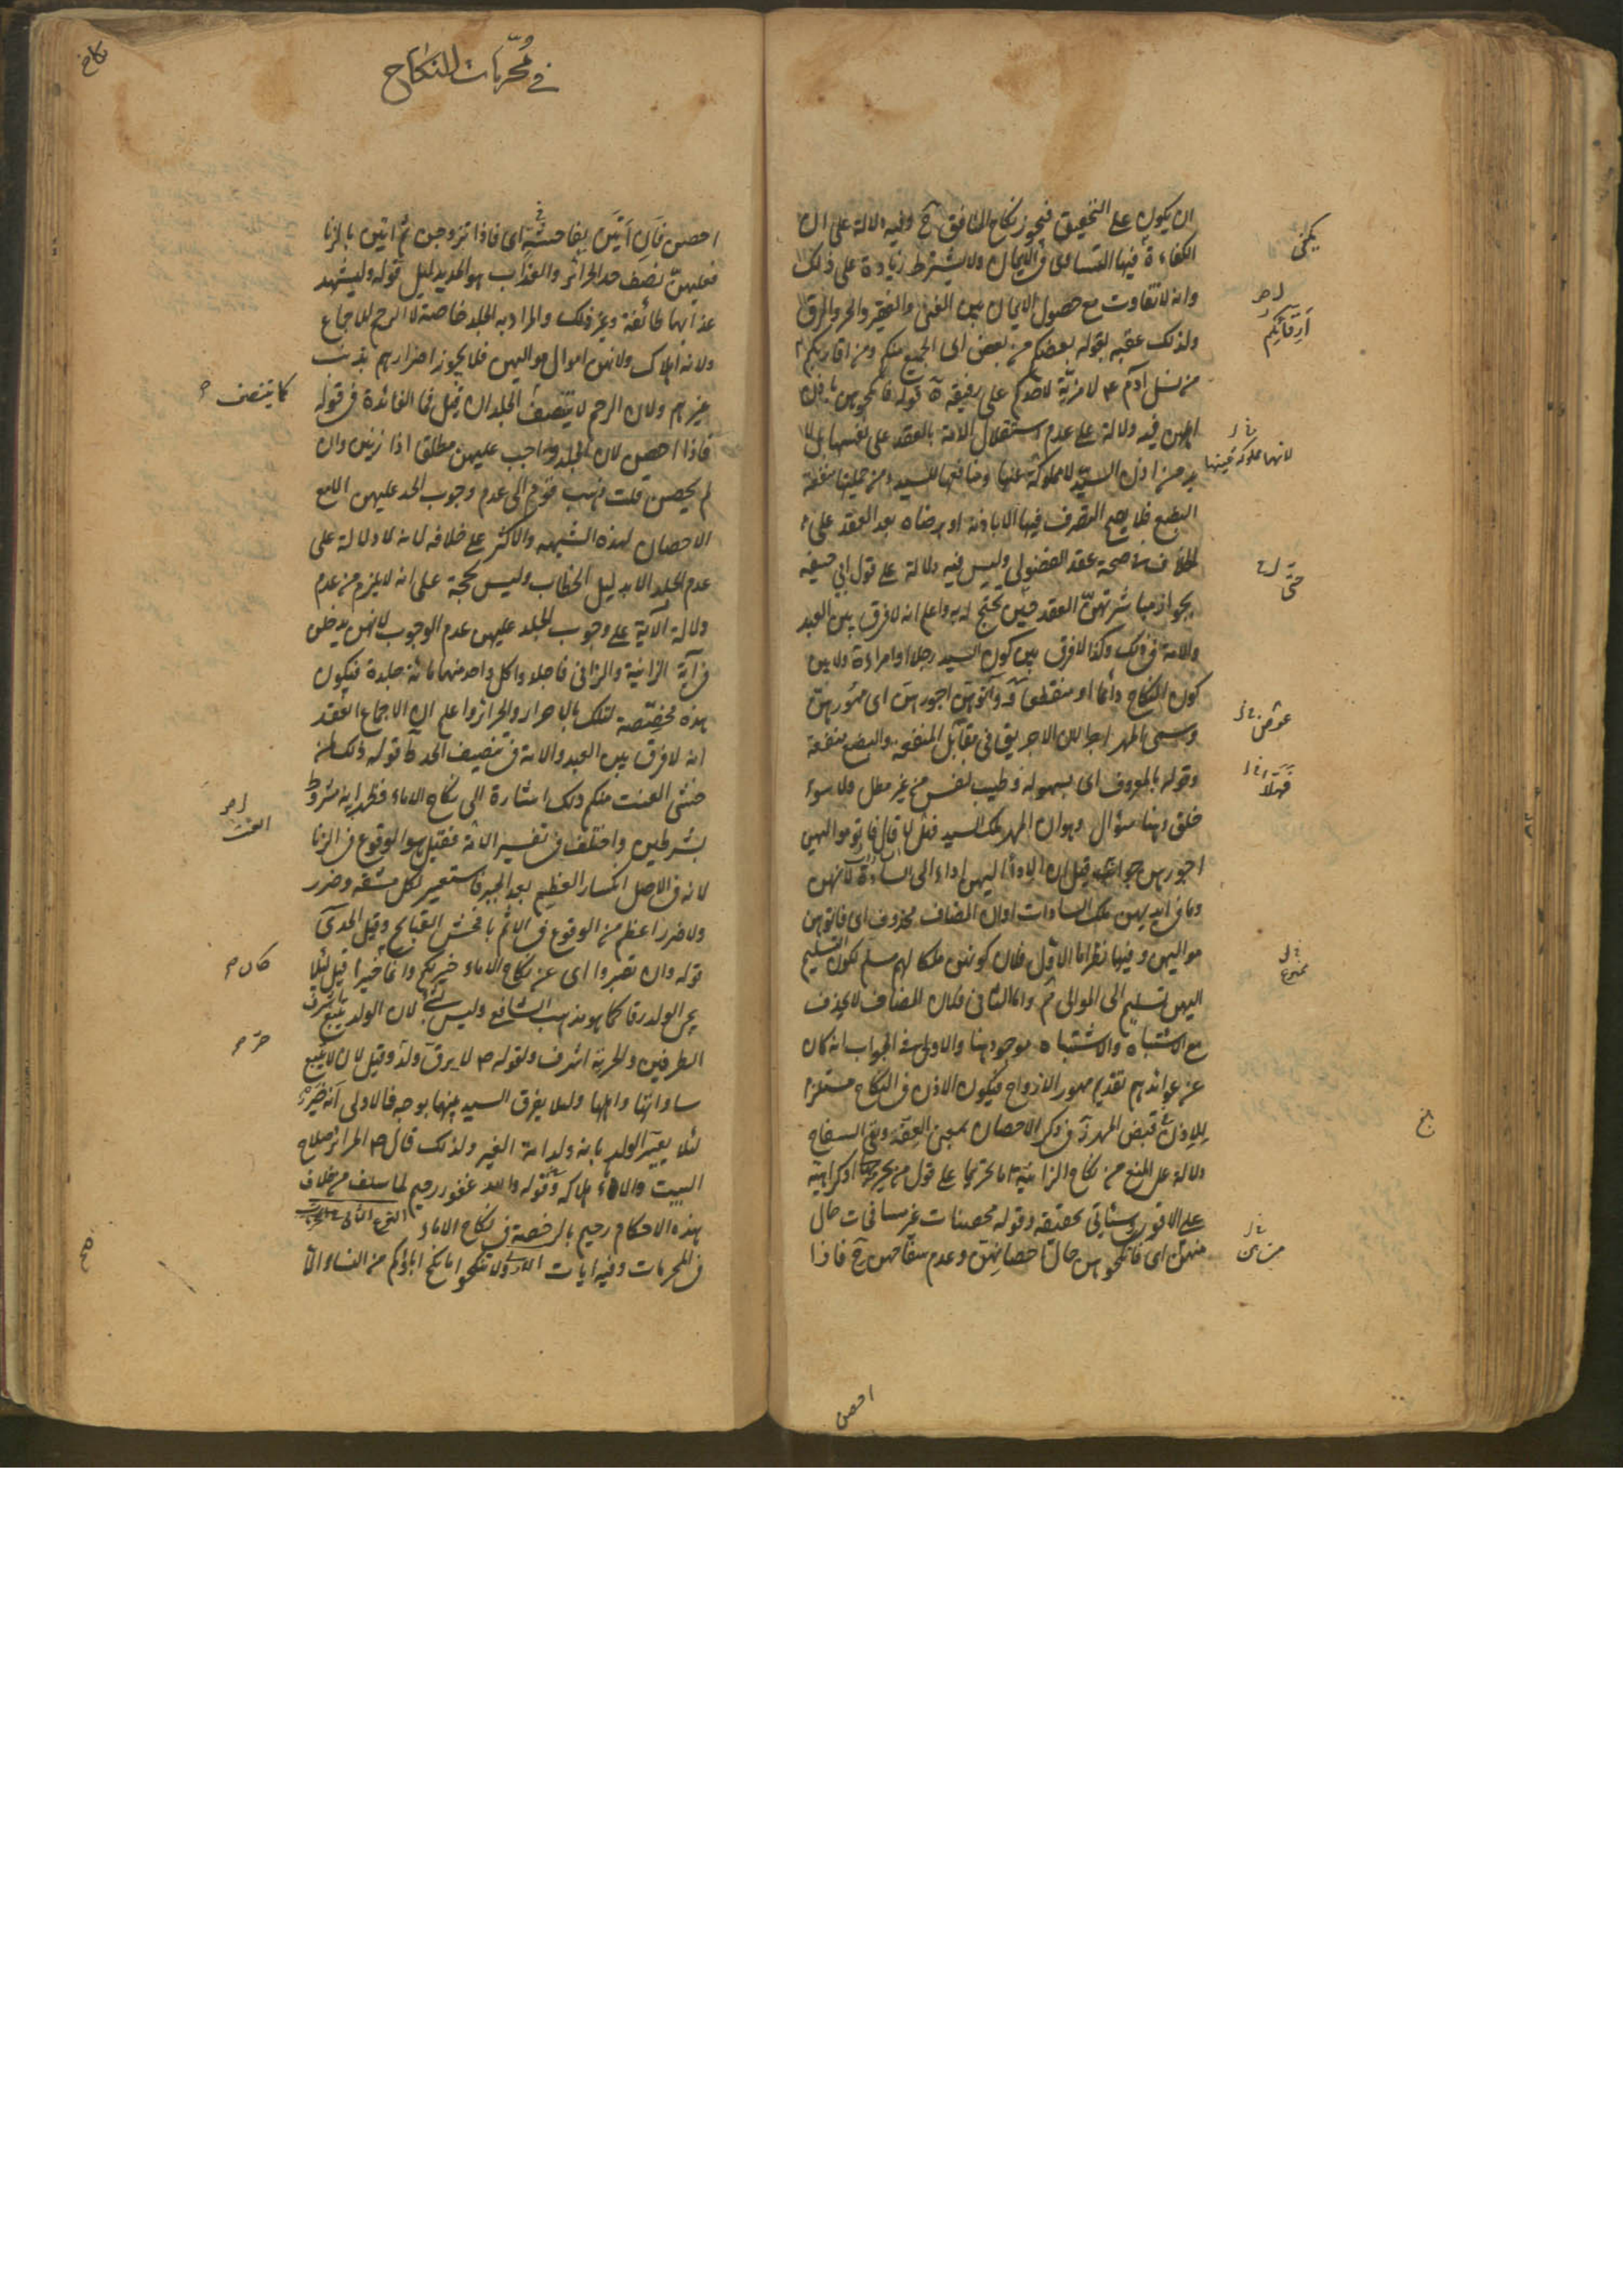 ان يكون على التحقيق فيجوز نكاح المنافق ح وفيه دلالة على ان
الكفاءة فيها التساوى فى الايمان ولا يشترط زيادة على ذلك
وانه لا تفاوت مع حصول الايمان بين الغنى والفقير والحر والرق
ولذلك عقبه بقوله بعضكم من بعض اى الجميع منكم ومن
من نسل آدم ع لا مزية لاحدكم على رفيقه ة قوله فانكحوهن باذن
اهلهن فيه دلالة على عدم استقلال الامة بالعقد على نفسها بل لا
بد من اذن السيد لا ومنافعها للسيد ومن جملتها منفعة
البضع فلا يصح التصرف فيها الا باذنه او برضاه بعد العقد على
الخلاف فى صحة عقد الفضولى وليس فيه دلالة على قول ابى حنيفه
بجواز مباشرتهن العقد حتى يحتج له به واعلم انه لا فرق بين العبد
والامة فى ذلك وكذا لا فرق بين كون السيد رجلا او امراءة ولا بين
كون النكاح دائما او منقطعا وآتوهن اجورهن اى مهورهن
وسمى المهر اجرا لان الاجر يق فى مقابل المنفعه والبضع منفعة
وقوله بالمعروف اى بسهولة وطيب نفس من غير مطل ولا سوء
خلق وهنا سؤال وهو ان المهر ملك السيد قال فاتوا مواليهن
اجورهن جوابه قيل ان الاداء اليهن اداء الى السادة لانهن
وما فى ايديهن ملك السادات او ان المضاف محذوف اى فاتوهن
مواليهن وفيهما نظر اما الاول فلان كونهن ملكا لهم مسلم لكون التسليم
اليهن تسليم الى الموالى واما الثانى فلان المضاف لا يحذف
مع الاشتباه والاشتباه موجود هنا والاولى فى الجواب انه كان
من عوائدهم تقديم مهور الازواج فيكون الاذن فى النكاح مستلزما
للاذن فى قبض المهر ة فى ذكر الاحصان بمعنى العفة ونفى السفاح
دلالة على المنع من نكاح الزانية اما تحريما على قول من يحرمها او كراهية
على الاقوى وسيأتى تحقيقه وقوله محصنات غير مسافحات حال
منهن اى فانكحوهن حال احصانهن وعدم سفاحهن ح فاذا
يكفى
ارقائكم
لانها مملوكة عينها
حتى
عوض
فهلا
ممنوع
من هن
احصن
فى محرمات النكاح
نكاح
احصن فان اتين بفاحشة اى فاذا تزوجن ثم اتين بالزنا
فعليهن نصف حد الحرائر والعذاب هو الحد بدليل قوله وليشهد
عذابهما طائفة وغير ذلك والمراد به الجلد خاصة لا الرجم للاجماع
ولانه اهلاك ولانهن اموال مواليهن فلا يجوز اضرارهم بذنب
غيرهم ولان الرجم لا يتنصف الجلد ان قيل فما الفائدة فى قوله
فاذا احصن لان الجلد واجب عليهن مطلقا اذا زنين وان
لم يحصن قلت ذهب قوم الى عدم وجوب الحد عليهن الا مع
الاحصان لهذه الشبهه والاكثر على خلافه لانه لا دلالة على
عدم الجلد الا بدليل الخطاب وليس بحجة على انه لا يلزم من عدم
دلالة الآية على وجوب الجلد عليهن عدم الوجوب لانهن يدخلن
فى آية الزانية والزانى فاجلدوا كل واحد منهما مائة جلدة فيكون
هذه مخصصة لتلك بالاحرار والحرائر واعلم ان الاجماع انعقد
انه لا فرق بين العبد والامة فى تنصيف الحد ط قوله ذلك لمن
خشى العنت منكم ذلك اشارة الى نكاح الاماء فظهر انه مشروط
بشرطين واختلف فى تفسير فقيل هو الوقوع فى الزنا
لانه فى الاصل انكسار العظم بعد الجبر فاستعير لكل مشقه وضرر
ولا ضرر اعظم من الوقوع فى الاثم بافحش القبايح وقيل الحد ى
قوله وان تصبروا اى عن نكاح الاماء خير لكم وانما خيرا قيل لئلا
يجئ الولد رقا كما هو مذهب الشافعى وليس بشئ لان الولد يتبع اشرف
الطرفين والحرية اشرف ولقوله ص لا يرق ولد وقيل لان لا يتبع
ساداتها واهلها ولئلا يفرق السيد بينهما بوجه فالاولى انه خير
لئلا يعير الولد بانه ولد امة الغير ولذلك قال ص الحرائر صلاح
البيت والاماء هلاكه وقوله والله غفور رحيم لما سلف من خلاف
هذه الاحكام رحيم بالرخصة فى نكاح الاماء النوع الثانى
فى المحرمات وفيه ايات الاولى ولا تنكحوا ما نكح اباؤكم من النساء الا
كما يتنصف
العنت
كان
حر